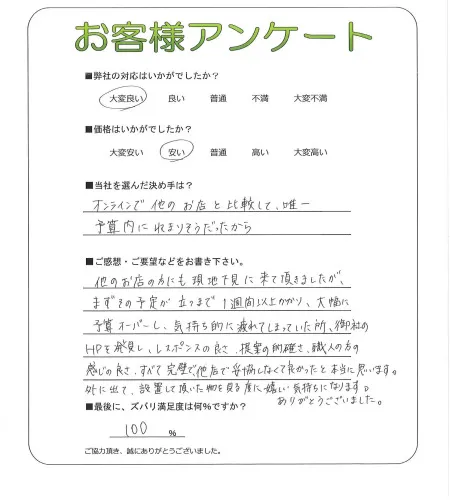 お客様アンケート
■弊社の対応はいかがでしたか?
大変良い 良い 普通 不満 大変不満
■価格はいかがでしたか?
大変安い 安い 普通 高い 大変高い
■当社を選んだ決め手は?
オンラインで他のお店と比較して、唯一
予算内に収まりそうだったから
■ご感想・ご要望などをお書き下さい。
他のお店の方にも現地下見に来て頂きましたが、
まずその予定が立つまで1週間以上かかり、大幅に
予算オーバーし、気持ち的に疲れてしまっていた所、御社の
HPを発見し、レスポンスの良さ、提案の的確さ、職人の方の
感じの良さ、すべて完璧で、他店で妥協しなくて良かったと本当に思います。
外に出て、設置して頂いた物を見る度に嬉しい気持ちになります。
ありがとうございました。
■最後に、ズバリ満足度は何%ですか?
100 %
ご協力頂き、誠にありがとうございました。